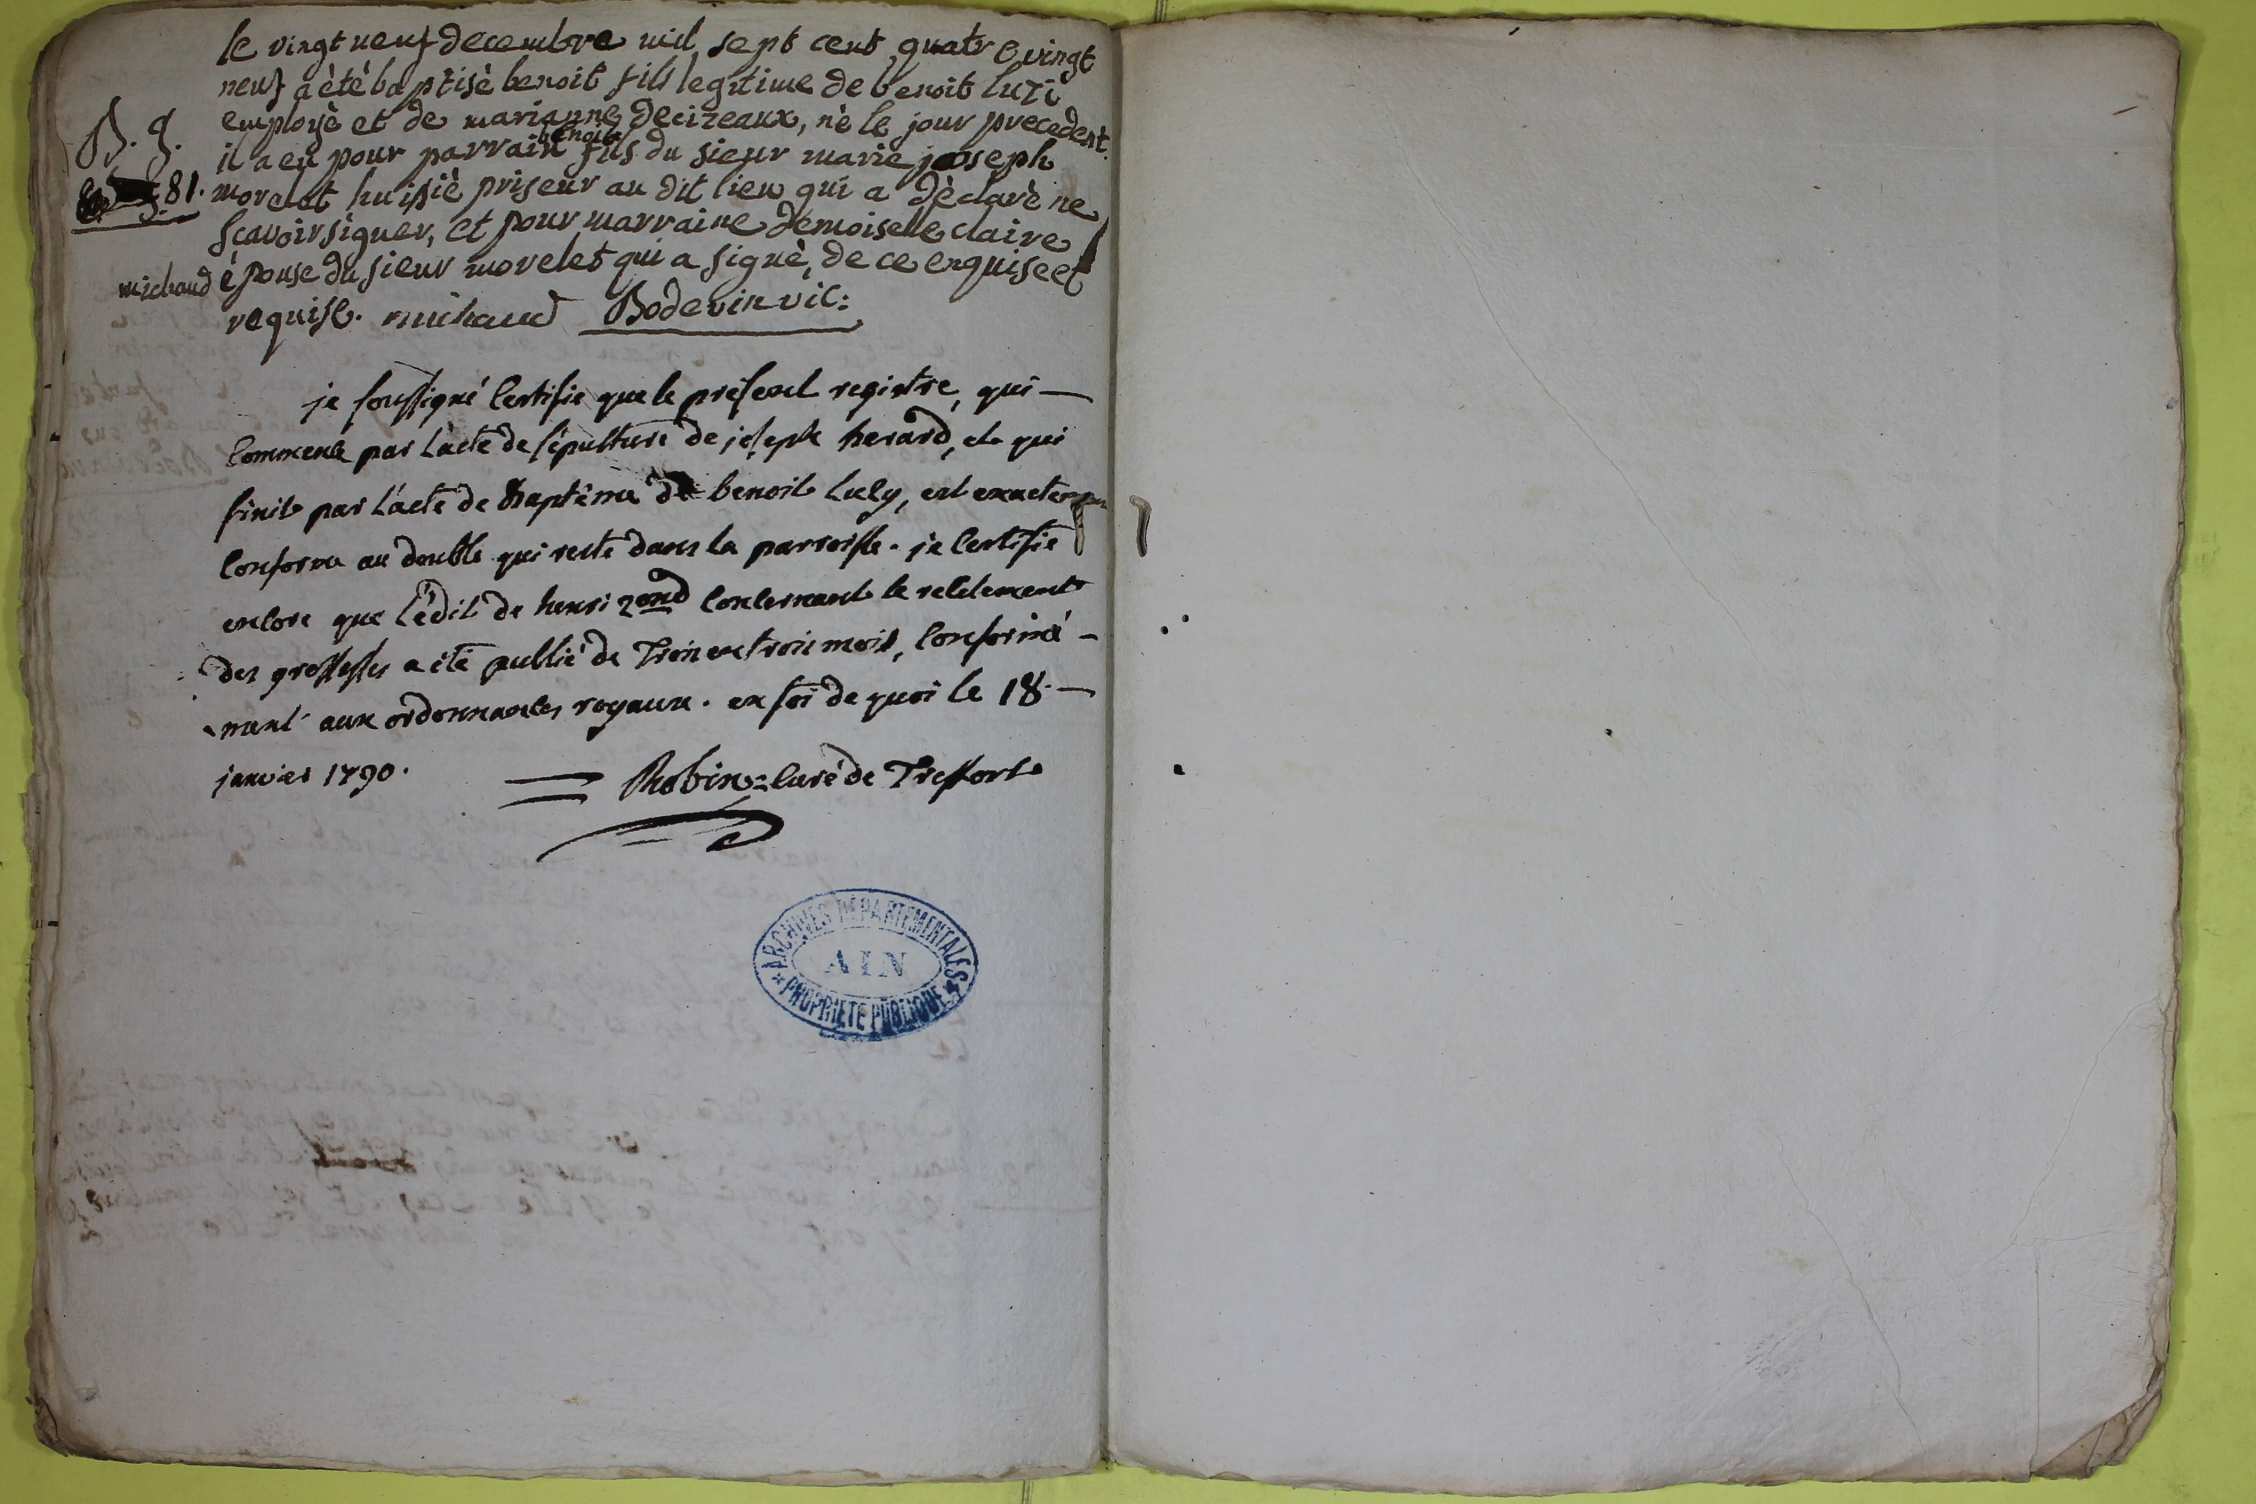 le vingt neuf decembre mil sept cent quatre vingt
neuf a èté baptisè benoit fils legitime de benoit luzi
employè et de marianne decizeaux, nè le jour precedent.
B. g. il a eu pour parrain benoit fils du sieur marie joseph
81. morelet huissiè priseur au dit lieu qui a dèclarè ne
sçavoir signer, et pour marraine demoiselle claire
michaud èpouse du sieur morelet qui a signè, de ce enquise et
requise. michaud Bodevin vic:
je soussigné certifie que le présent registre, qui —
commence par l'acte de sépulture de joseph herard, et qui
finit par l'acte de Baptême de benoit luzy, est exactement
conforme au double qui reste dans la parroisse. je certifie
encore que l'édit de henri 2ond concernant le recelement
des grossesses a été publié de trois en trois mois, conformé-
ment aux ordonnances royaux. en foi de quoi le 18. —
janvier 1790. Robin = curé de Treffort
ARCHIVES DEPARTEMENTALES
AIN
PROPRIETE PUBLIQUE